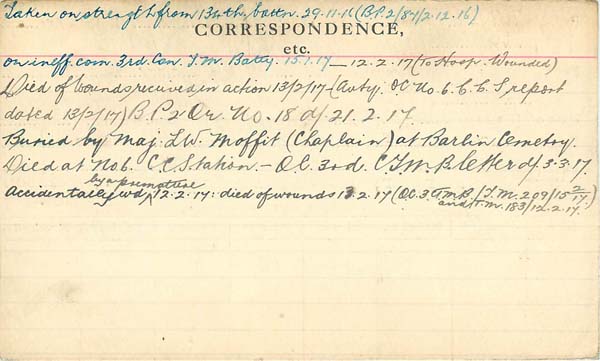 Taken on strength from 13th battn. 29-11-16 (B.P.2/8-1/2.12.16)
CORRESPONDENCE,
etc.
on ineff. com. 3rd. Can. T.M. Batty. 15.1.17 — 12.2.17 (To Hosp. Wounded)
Died of wounds received in action 13/2/17 - (Auty. OC No. 6. C.C.S. report
dated 13/2/17) B.P. 2 Or. No. 18 d/ 21.2.17.
Buried by Maj. L.W. Moffit (Chaplain) at Barlin Cemetry.
Died at No 6. C.C. Station. - O.C. 3rd. C.T.M.B. letter d/ 3.3.17.
by a premature
Accidentally wd, 12.2.17: died of wounds 13.2.17 (O.C. 3. T.M.B. / T.M. 209/15 2/17)
and T.M. 183/12.2.17.